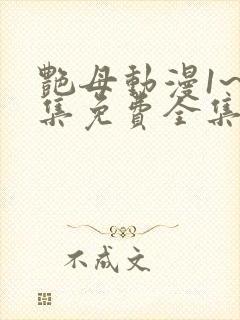 艷母動漫1~
集免費全集
不成文